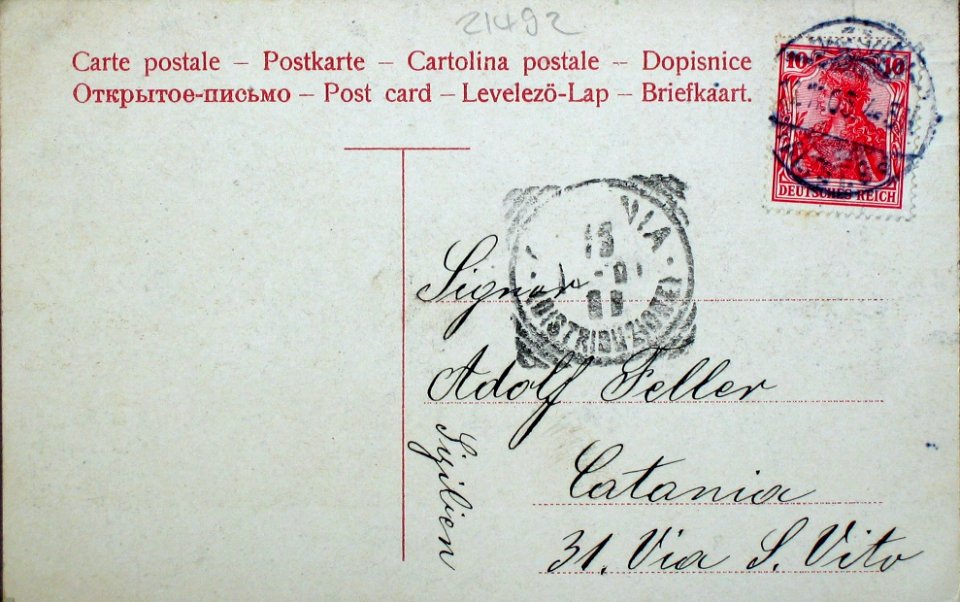 21492
Carte postale – Postkarte – Cartolina postale – Dopisnice
Открытое-письмо – Post card – Levelezö-Lap – Briefkaart.
10 10
DEUTSCHES REICH
DISTRIBUZIONE
Signor
Adolf Feller
Catania
31. Via S. Vito
Sizilien